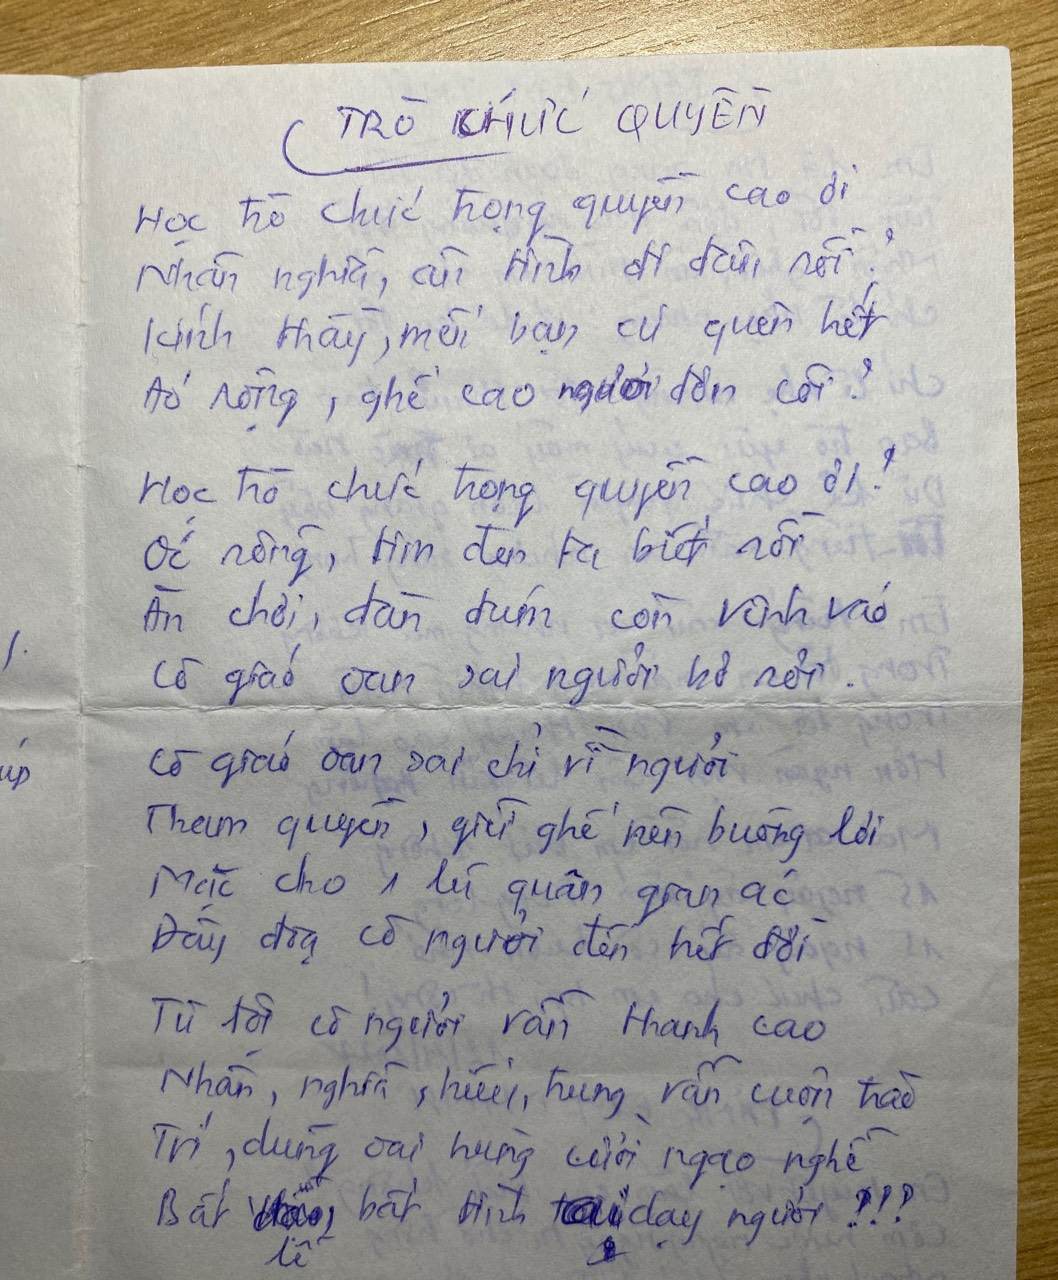 TRÒ CHỨC QUYỀN
Học trò chức trọng quyền cao ơi
Nhân nghĩa, ân tình đi đâu rồi?
Kính thầy, mến bạn cứ quên hết
Áo rộng, ghế cao người đơn côi?
Học trò chức trọng quyền cao ơi?
Óc rỗng, tim đen ta biết rồi
Ăn chơi, đàn đúm còn vênh váo
Cô giáo oan sai ngươi hả rồi.
Cô giáo oan sai chỉ vì ngươi
Tham quyền, giữ ghế nên buông lơi
Mặc cho 1 lũ quân gian ác
Đầy đoạ cô ngươi đến hết đời
Tù tội cô ngươi vẫn thanh cao
Nhân, nghĩa, hiếu, trung vẫn cuộn trào
Trí, dũng oai hùng cười ngạo nghễ
Bất bất tình dạy ngươi !!!
lễ
1.
úp